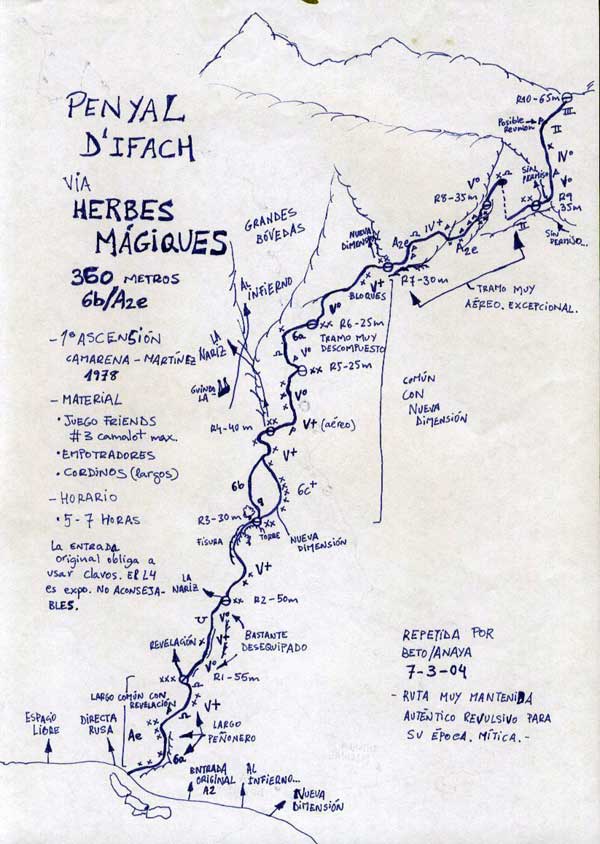 PENYAL
D'IFACH
VIA
HERBES
MÁGIQUES
350 METROS
6b/A2e
- 1ª ASCENSIÓN
CAMARENA - MARTÍNEZ
1978
- MATERIAL
• JUEGO FRIENDS
#3 camalot max.
• EMPOTRADORES
• CORDINOS (largos)
- HORARIO
• 5 - 7 HORAS
La ENTRADA
original obliga a
usar clavos. El L4
es expo. No ACONSEJA-
BLES.
R10-65m
III
Posible
Reunion
II
IVº
SIN
PERMISO
Vº
R9
35m
SIN
PERMISO...
II
Vº
R8-35m
IV+
A2e
A2e
NUEVA
DIMENSIÓN
R7-30m
TRAMO MUY
AÉREO. EXCEPCIONAL.
GRANDES
BÓVEDAS
V+
BLOQUES
Vº
AL
INFIERNO
6a
R6-25m
TRAMO MUY
DESCOMPUESTO
LA
NARIZ
Vº
R5-25m
GUINDA
LA
Vº
COMÚN
CON
NUEVA
DIMENSIÓN
R4-40m
V+ (aéreo)
V+
6b
6c+
R3-30m
FISURA
TORRE
NUEVA
DIMENSIÓN
V+
LA
NARIZ
R2-50m
Vº
BASTANTE
DESEQUIPADO
V+
REVELACIÓN
Vº
R1-55m
LARGO COMÚN CON
REVELACIÓN
V+
ESPACIO
LIBRE
DIRECTA
RUSA
Ae
LARGO
PEÑONERO
6a
ENTRADA
ORIGINAL
A2
AL
INFIERNO...
NUEVA
DIMENSIÓN
REPETIDA POR
BETO/ANAYA
7-3-04
- RUTA MUY MANTENIDA
AUTÉNTICO REVULSIVO PARA
SU ÉPOCA. MÍTICA.-